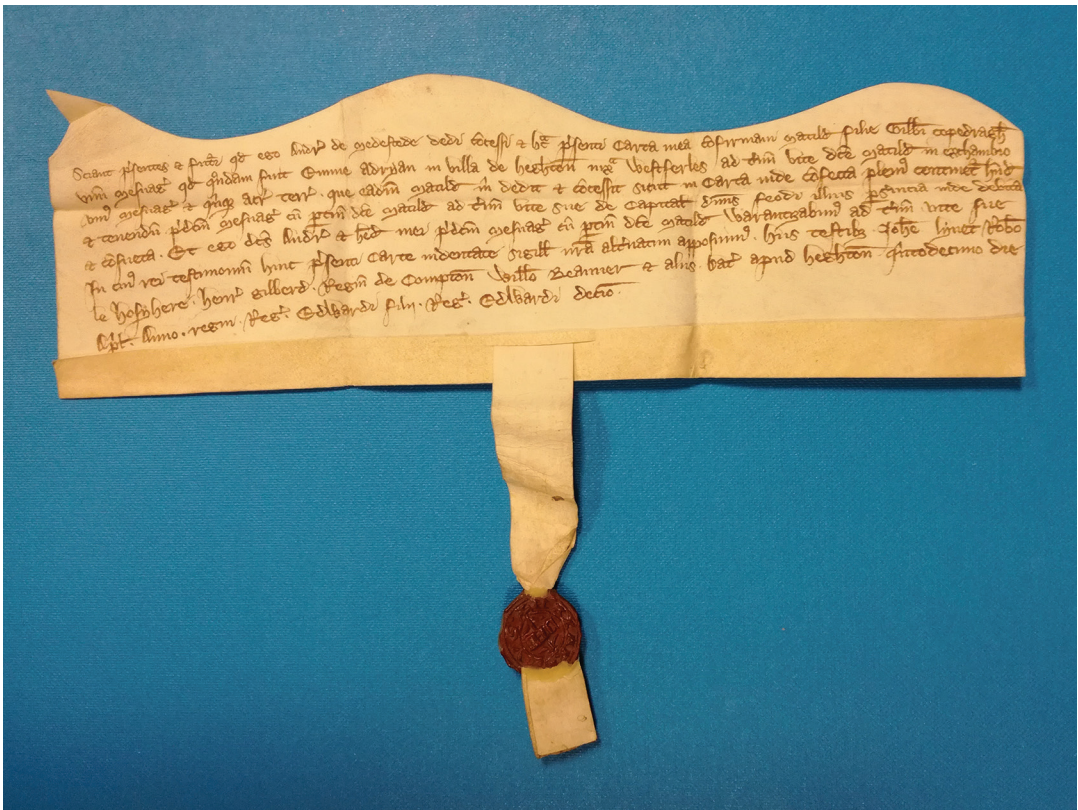 Sciant p̄sentes & fut̄i qd ego Andr̄ de Medestede dedi c̄cessi & hac p̄senti Carta mea c̄firmaui Matild̄ filie Gilb̄ti
vnū Mesuag̉ qd q̄ndam fuit Emme Adryan in villa de Heghton̄ iuxa Westferles ad t̄m̄ vite d̄c̄e Matild̄ in exchambio
vni Mesuag̉ & q̄nq̉ acr̄ terr̄ que eadm̄ Matild̄ m̄ dedit & c̄cessit sicut in Carta inde c̄fecta pleni9 continet̉ hnd̄
& tenend̄ p̄dc̄m Mesuag̉ cū p̄tin̄ d̄c̄e Matild̄ ad t̄m̄ vite sue de Capital̄ dn̄is feodi illius p̄ s̄uicia inde debita
& c̄sueta. Et ego dc̄s Andr̄ & hed̄ mei p̄dc̄m Mesuag̉ cū p̄tin̄ d̄c̄e Matild̄ Warantizabim9 ad t̄m̄ vite sue
In cui9 rei testimoniū huic p̄senti Carte indentate Sigill̄ n̄ra alt̄natim apposuim9. hiis testib3 Joh̄e lynet Rob̄o
le hennr̄ Gilberd. Regin̄ de Compton̄ Will̄o & aliis. Dat̄ apud Heghton̄ q̄ntodecimo die
Ap̄l̄. Anno. regni. Reg̉. Edwardi filii. Reg̉. Edwardi decīo.